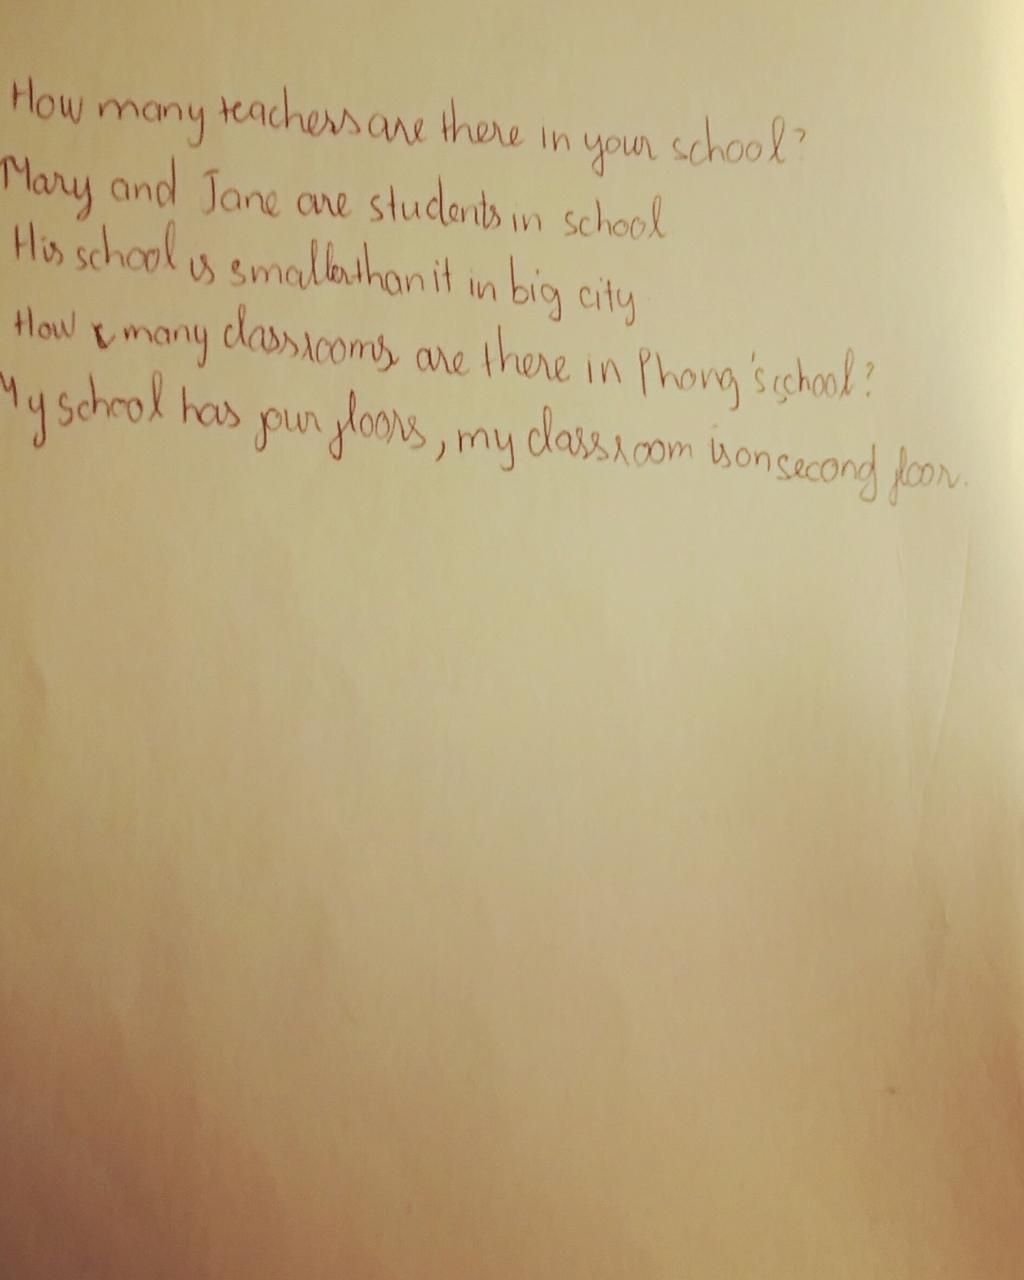 How many teachers are there in your school?
Mary and Jane are students in school
His school is smaller than it in big city
How many classrooms are there in Phong's school?
My school has four floors, my classroom is on second floor.